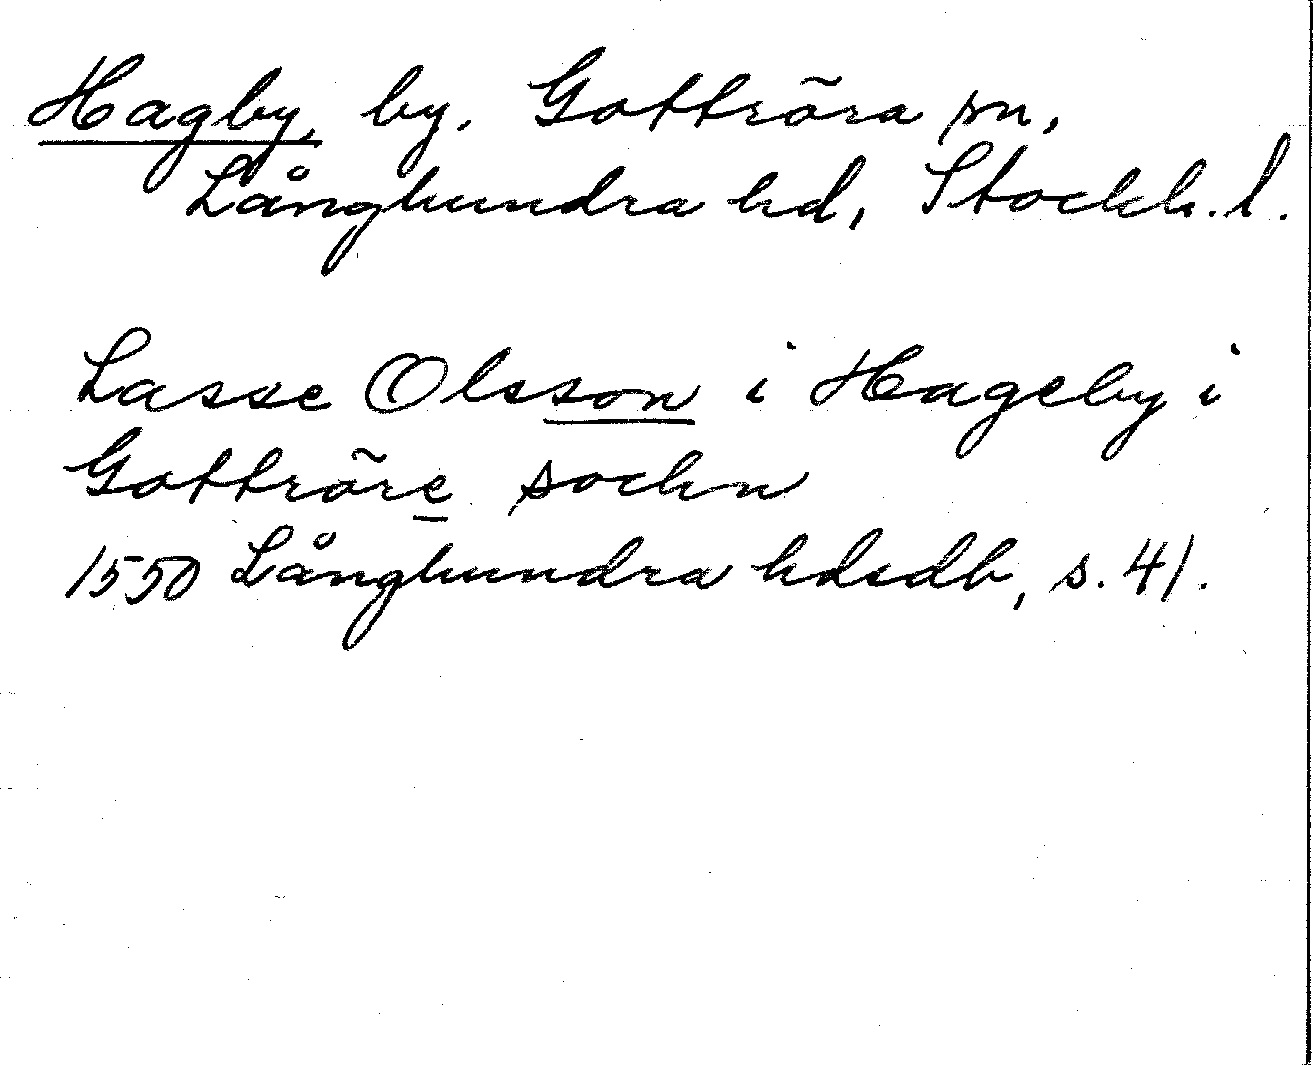 Hagby, by. Gottröra sn,
Långhundra hd, Stockh. l.
Lasse Olsson i Hageby i
Gottröre sochn
1550 Långhundra hdsdb, s. 41.